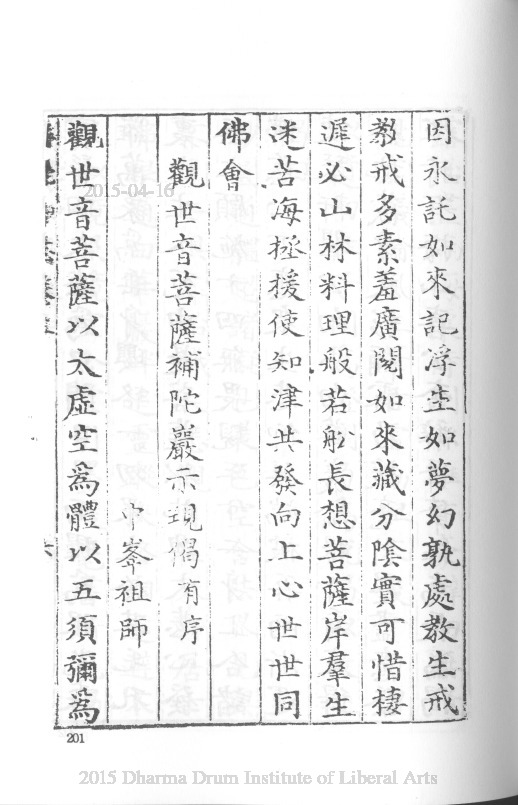 因永託如來記浮空如夢幻孰處教生戒
教戒多素羞廣閱如來藏分陰實可惜棲
遲必山林料理般若船長想菩薩岸羣生
迷苦海拯援使知津共發向上心世世同
佛會
觀世音菩薩補陀巖示現偈有序
中峯祖師
觀世音菩薩以太虛空為體以五須彌為
2015-04-16
201
2015 Dharma Drum Institute of Liberal Arts